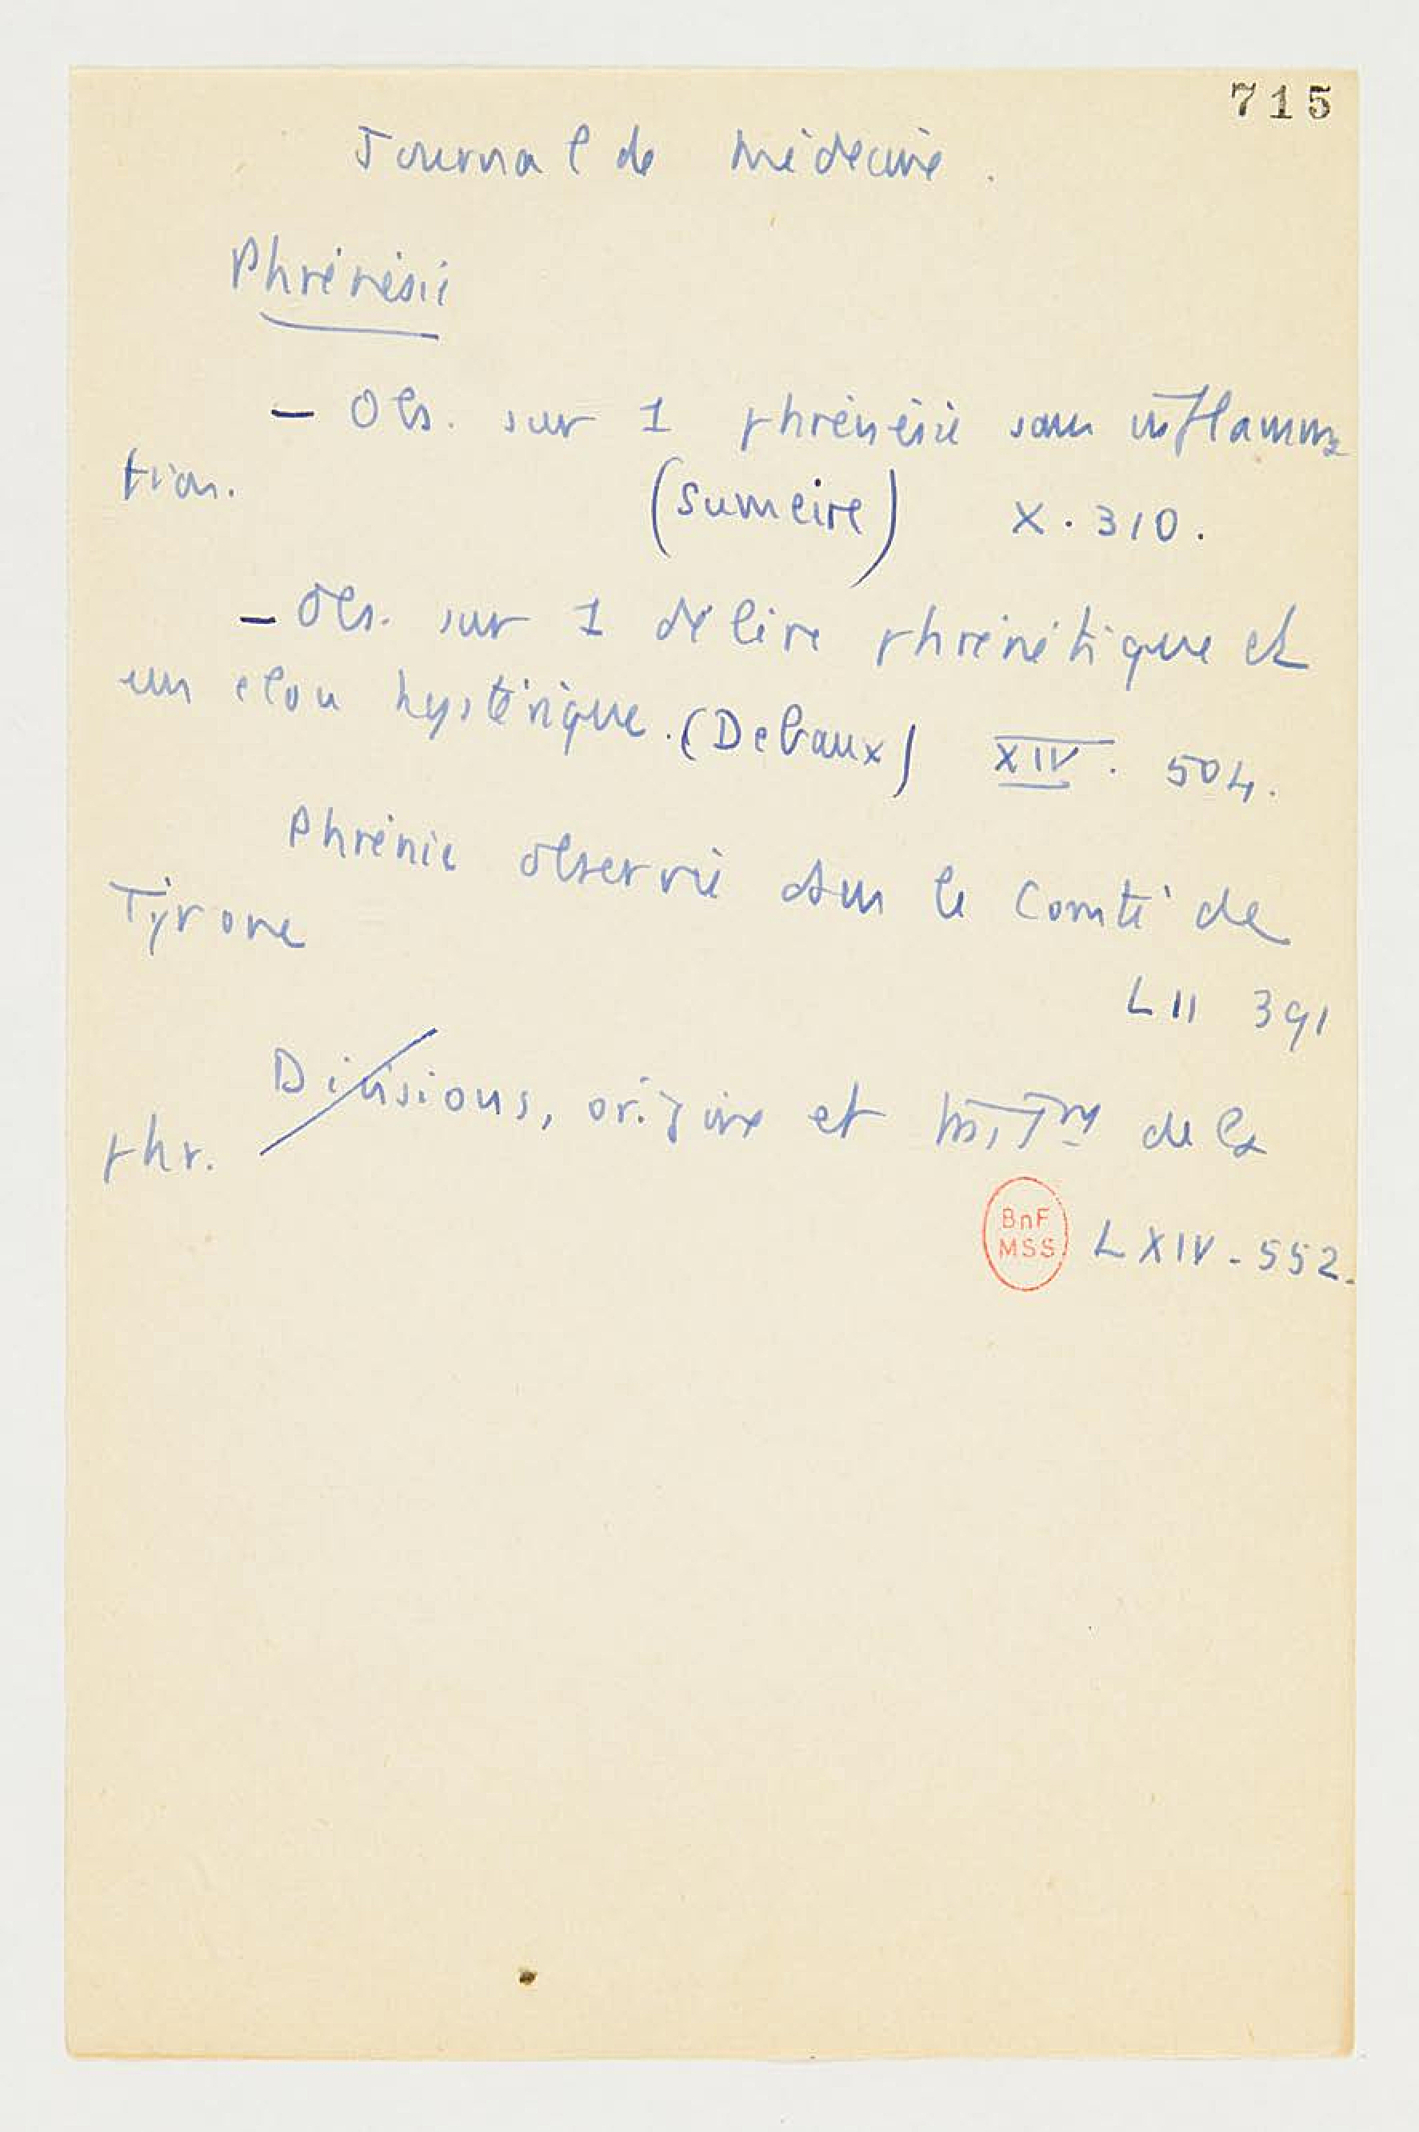 715
Journal de médecine.
Phrénésie
– Obs. sur 1 phrénésie sans inflamma
tion.
(Sumeire) X. 310.
– Obs. sur 1 délire phrénétique et
un clou hystérique. (Debaux) XIV. 504.
Phrénie observée dans le Comté de
Tyrone
LII 391
Divisions, origine et de la
phr.
BnF
MSS
LXIV - 552.